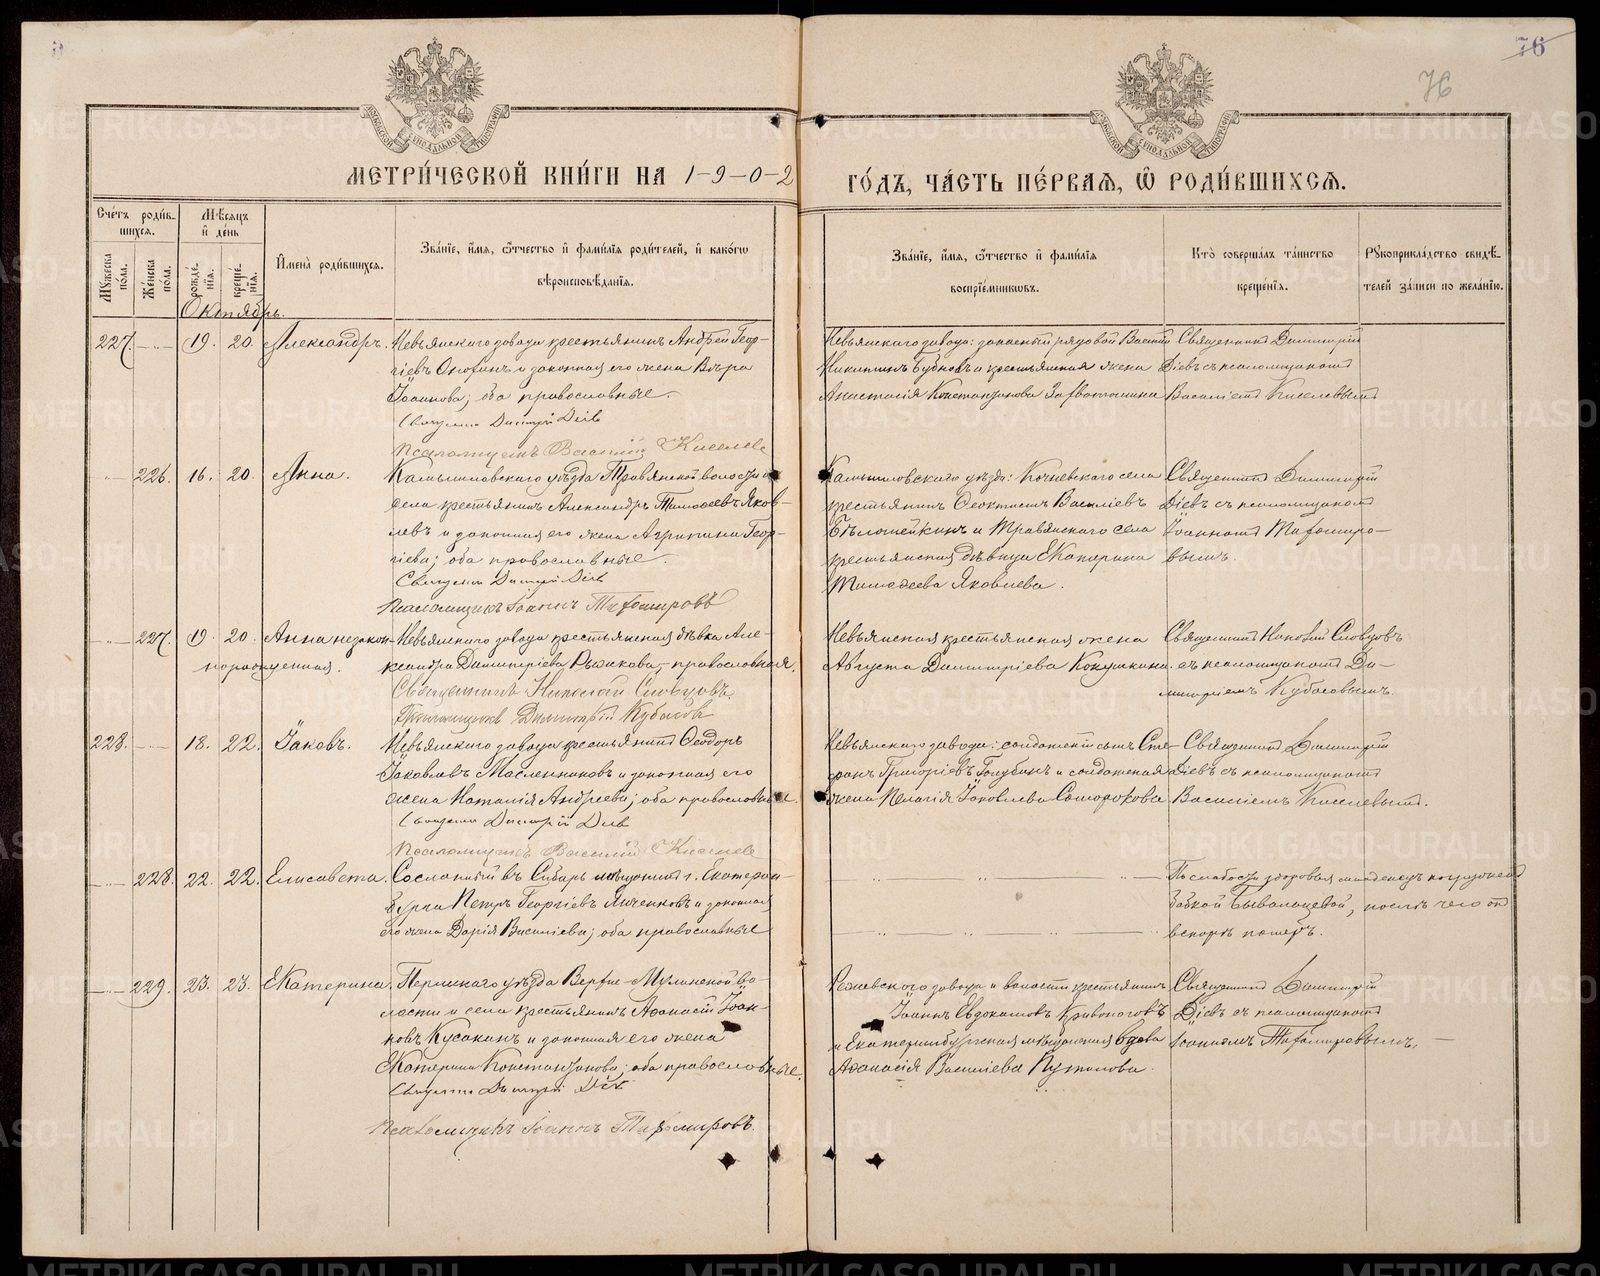 76
76
МОСКОВСКОЙ СѴНОДАЛЬНОЙ ТИПОГРАФІИ
МОСКОВСКОЙ СѴНОДАЛЬНОЙ ТИПОГРАФІИ
МЕТРИ́ЧЕСКОЙ КНИ́ГИ НА 1-9-0-2
ГО́ДЪ, ЧА́СТЬ ПЕ́РВАѦ, Ѡ҆ РОДИ́ВШИХСѦ.
Сче́тъ роди́в-
шихсѧ.
Мꙋ́жеска пола.
Же́нска пола.
Мѣ́сѧцъ
и҆ де́нь
рожде́нїѧ.
креще́нїѧ.
И҆мена̀ роди́вшихсѧ.
Зва́нїе, и҆́мѧ, ѻ҆́тчество и҆ фами́лїѧ роди́телей, и҆ како́гѡ
вѣроисповѣ́данїѧ.
Зва́нїе, и҆́мѧ, ѻ҆́тчество и҆ фами́лїѧ
воспрїе́мникѡвъ.
Кто̀ соверша́лъ та́инство
креще́нїѧ.
Рꙋкоприкла́дство свидѣ́-
телей за́писи по жела́нїю.
Октябрь.
227. 19. 20. Александръ.
Невьянскаго завода крестьянинъ Андрей Геор-
гіевъ и законная его жена Вѣра
Іоаннова; оба православные.
Священникъ Димитрій Діевъ
Псаломщикъ Василій Киселевъ
Невьянскаго завода: запасный рядовой Василій
Никитинъ Бубновъ и крестьянская жена
Анастасія Константинова
Священникъ Димитрій
Діевъ съ псаломщикомъ
Василіемъ Киселевымъ
226. 16. 20. Анна.
Камышловскаго уѣзда Травянской волости и
села крестьянинъ Александръ Тимоѳеевъ Яков-
левъ и законная его жена Агрипина Геор-
гіева; оба православные.
Священникъ Димитрій Діевъ
Псаломщикъ Іоаннъ Тихомировъ
Камышловскаго уѣзда: Кочневскаго села
крестьянинъ Ѳеоктистъ Василіевъ
Бѣлошейкинъ и Травянскаго села
крестьянская дѣвица Екатерина
Тимоѳеева Яковлева.
Священникъ Димитрій
Діевъ съ псаломщикомъ
Іоанномъ Тихомиро-
вымъ.
227. 19. 20. Анна незакон-
норожденная.
Невьянскаго завода крестьянская дѣвка Але-
ксандра Димитріева Рыжкова, православная.
Священникъ Николай Словцовъ.
Псаломщикъ Димитрій Кубасовъ
Невьянская крестьянская жена
Августа Димитріева Кокушкина.
Священникъ Николай Словцовъ
съ псаломщикомъ Ди-
митріемъ Кубасовымъ.
228. 18. 22. Іаковъ.
Невьянскаго завода крестьянинъ Ѳеодоръ
Іаковлевъ Масленниковъ и законная его
жена Наталія Андреева; оба православные.
Священникъ Димитрій Діевъ
Псаломщикъ Василій Киселевъ
Невьянскаго завода: солдатскій сынъ Сте-
фанъ Григоріевъ Голубинъ и солдатская
жена Пелагія Іаковлева Сыморокова
Священникъ Димитрій
Діевъ съ псаломщикомъ
Василіемъ Киселевымъ.
228. 22. 22. Елисавета.
Сосланный въ Сибирь мѣщанинъ г. Екатерин-
бурга Петръ Георгіевъ и законная
его жена Дарія Василіева; оба православные
По слабости здоровья младенецъ погруженъ
бабкой Бывальцевой, послѣ чего онъ
вскорѣ померъ.
229. 23. 23. Екатерина.
Пермскаго уѣзда Верхне-Муллинской во-
лости и села крестьянинъ Аѳанасій Іоан-
новъ Кусакинъ и законная его жена
Екатерина Константинова; оба православные.
Священникъ Димитрій Діевъ
Псаломщикъ Іоаннъ Тихомировъ.
Режевскаго завода и волости крестьянинъ
Іоаннъ Евдокимовъ Кривоноговъ
и Екатеринбургская мѣщанская вдова
Аѳанасія Василіева
Священникъ Димитрій
Діевъ съ псаломщикомъ
Іоанномъ Тихомировымъ.
METRIKI.GASO-URAL.RU